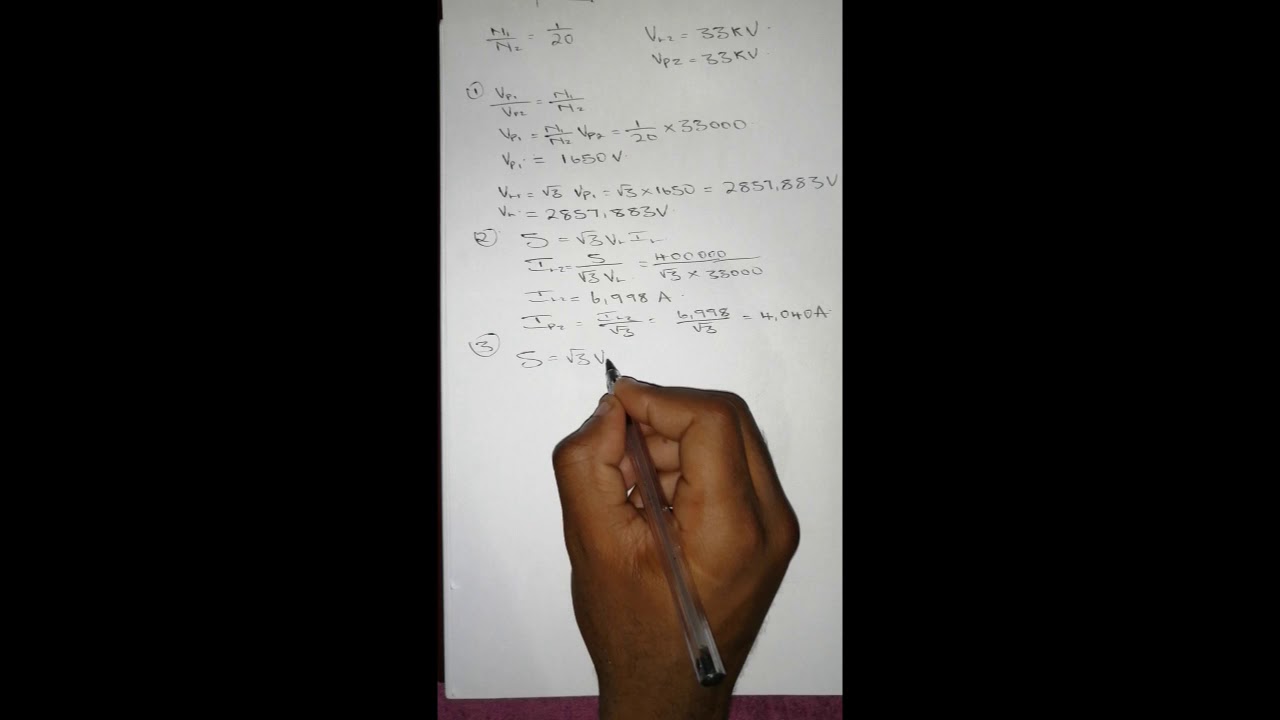 N₁/N₂ = 1/20 VL2 = 33KV
VP2 = 33KV
① VP1/VP2 = N₁/N₂
VP1 = N₁/N₂ VP2 = 1/20 × 33000
VP1 = 1650V
VL1 = √3 VP1 = √3 × 1650 = 2857,883V
VL = 2857,883V
② S = √3 VL IL
IL2 = S/√3 VL = 400000/√3 × 33000
IL2 = 6,998 A
IP2 = IL2/√3 = 6,998/√3 = 4,040A
③ S = √3 V